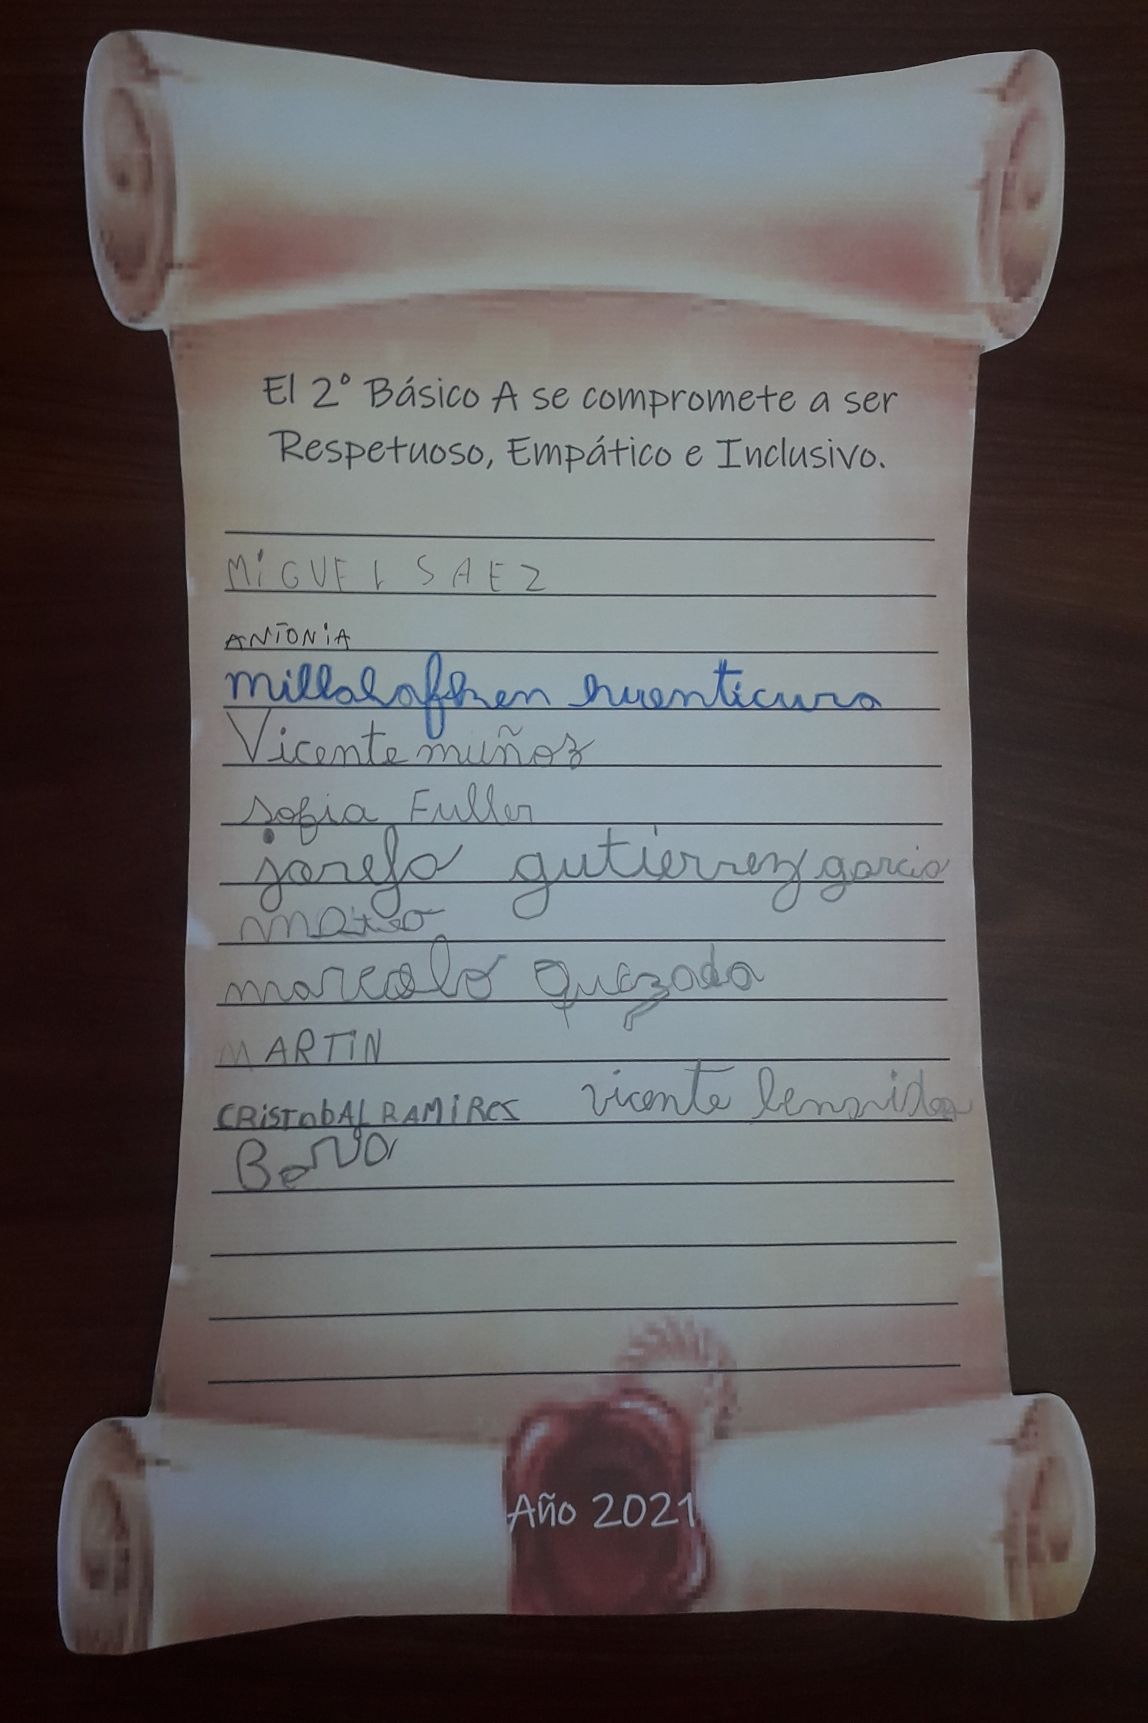 El 2° Básico A se compromete a ser
Respetuoso, Empático e Inclusivo.
MiGUEL SAEZ
ANTONiA
millalafken huenticura
Vicente muñoz
sofia Fuller
josefa gutiérrez garcia
mateo
marcelo quezada
MARTiN
CRiSTObAL RAMiRES vicente
Año 2021